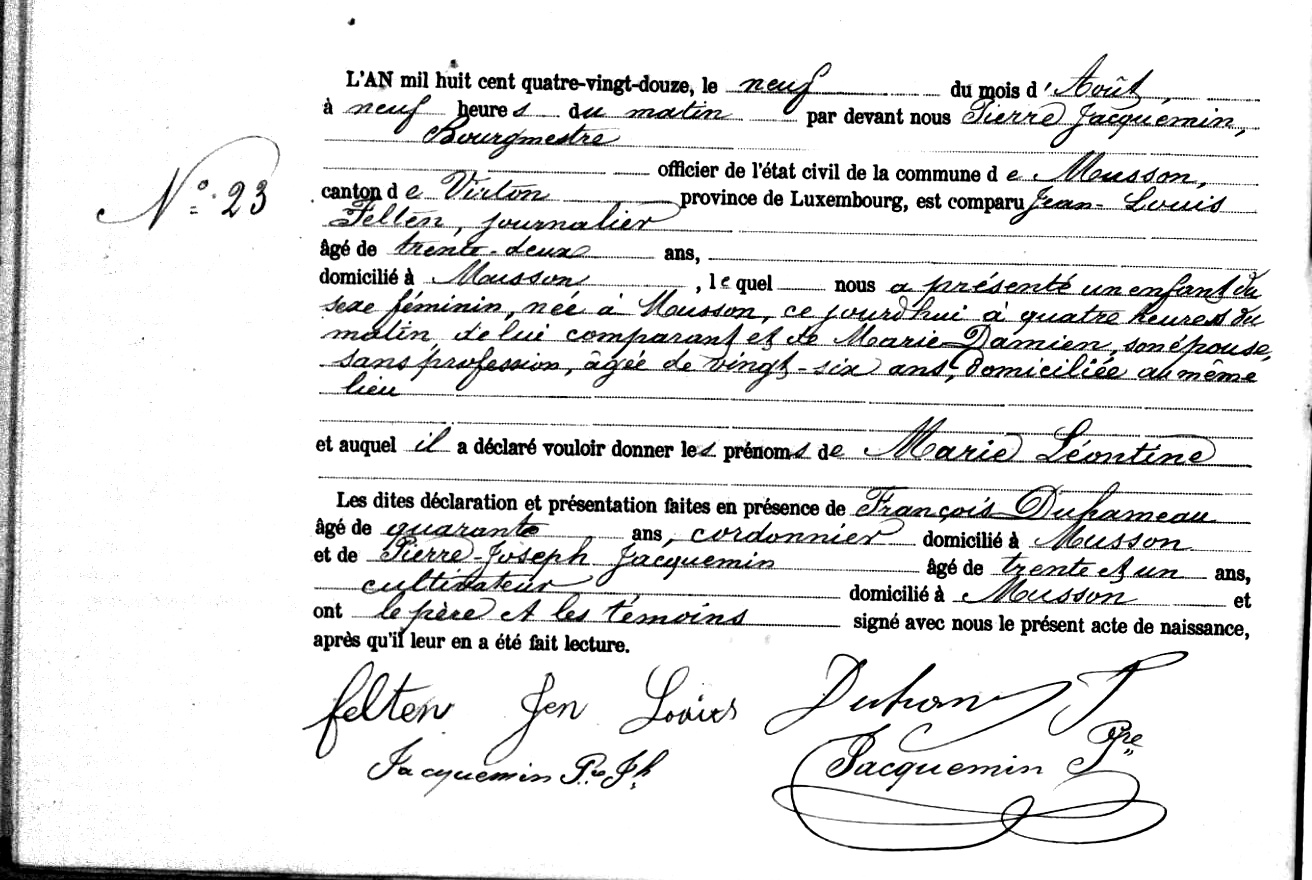 L'AN mil huit cent quatre-vingt-douze, le neuf du mois d'Août,
à neuf heures du matin par devant nous Pierre Jacquemin,
Bourgmestre
officier de l'état civil de la commune de Musson,
N° 23
canton de Virton province de Luxembourg, est comparu Jean-Louis
Felten, journalier
âgé de trente-deux ans,
domicilié à Musson, lequel nous a présenté un enfant du
sexe féminin, née à Musson, ce jourd'hui à quatre heures du
matin, de lui comparant et de Marie Damien, son épouse,
sans profession, âgée de vingt-six ans, domiciliée au même
lieu
et auquel il a déclaré vouloir donner les prénoms de Marie Léontine
Les dites déclaration et présentation faites en présence de François Duhameau
âgé de quarante ans, cordonnier domicilié à Musson
et de Pierre-Joseph Jacquemin âgé de trente et un ans,
cultivateur domicilié à Musson et
ont le père et les témoins signé avec nous le présent acte de naissance,
après qu'il leur en a été fait lecture.
felten Jen Louis
Jacquemin Pre Jh
Jacquemin Pre